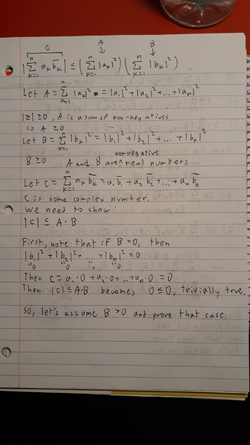 C A B
|∑ₖ₌₁ⁿ aₖ b̄ₖ| ≤ (∑ₖ₌₁ⁿ |aₖ|²) (∑ₖ₌₁ⁿ |bₖ|²)
Let A = ∑ₖ₌₁ⁿ |aₖ|² = |a₁|² + |a₂|² + ... + |aₙ|²
|z| ≥ 0, A is a sum of non-negatives
so A ≥ 0
Let B = ∑ₖ₌₁ⁿ |bₖ|² = |b₁|² + |b₂|² + ... + |bₙ|²
non-negative
B ≥ 0 A and B are real numbers.
Let C = ∑ₖ₌₁ⁿ aₖ b̄ₖ = a₁ b̄₁ + a₂ b̄₂ + ... + aₙ b̄ₙ
C is some complex number.
We need to show:
|C| ≤ A·B
First, note that if B = 0, then
|b₁|² + |b₂|² + ... + |bₙ|² = 0
0 0 0 0
Then C = a₁·0 + a₂·0 + ... + aₙ·0 = 0
Then |C| ≤ A·B becomes 0 ≤ 0, trivially true.
So, let's assume B > 0 and prove that case.